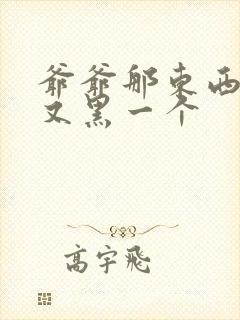 爷爷那东西
又黑一个
高宇飛